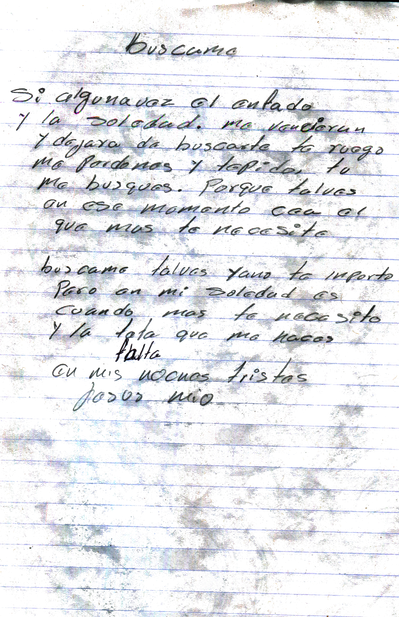 buscame
Si algunavez el enfado
y la soledad. me vencieran
y dejara de buscarte te ruego
me perdones y tepido. tu
me busques. Porque talves
en ese momento cea el
que mas te necesite
buscame talves yano te inporte
Pero en mi soledad es
cuando mas te necesito
y la falta que me haces
falta
en mis noches tristes
Jesus mio